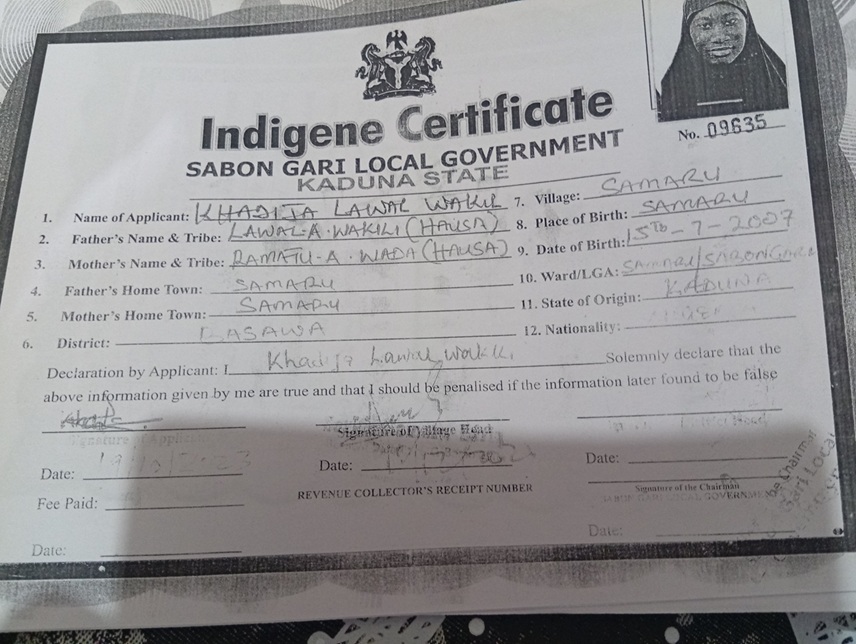 Indigene Certificate
No. 09635
SABON GARI LOCAL GOVERNMENT
KADUNA STATE
1. Name of Applicant: KHADIJA LAWAL WAKIL
2. Father's Name & Tribe: LAWAL-A. WAKILI (HAUSA)
3. Mother's Name & Tribe: RAMATU-A. WADA (HAUSA)
4. Father's Home Town: SAMARU
5. Mother's Home Town: SAMARU
6. District: BASAWA
7. Village: SAMARU
8. Place of Birth: SAMARU
9. Date of Birth: 15Th-7-2007
10. Ward/LGA: SAMARU/SABONGARI
11. State of Origin: KADUNA
12. Nationality:
Declaration by Applicant: I Khadija Lawal Wakili Solemnly declare that the
above information given by me are true and that I should be penalised if the information later found to be false
Signature of Applicant
Signature of Village Head
Date: Date: Date:
Fee Paid:
REVENUE COLLECTOR'S RECEIPT NUMBER
Signature of the Chairman
SABON GARI LOCAL GOVERNMENT
Date: Date: